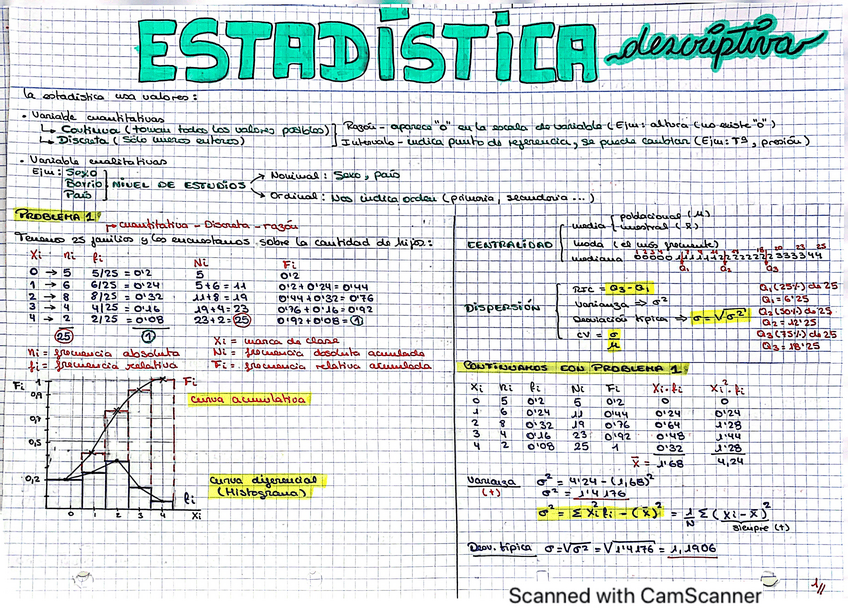 ESTADÍSTICA descriptiva
La estadística usa valores:
• Variable cuantitativas
↳ Continua (toman todos los valores posibles)
↳ Discreta (Sólo números enteros)
Razón - aparece "0" en la escala de variable (Ejm: altura (no existe "0")
Intervalo - indica punto de referencia, se puede cambiar (Ejm: Tª, presión)
• Variable cualitativas
Ejm: Sexo
Barrio
País
NIVEL DE ESTUDIOS
Nominal: Sexo, país
Ordinal: Nos indica orden (primaria, secundaria ...)
PROBLEMA 1
↳ cuantitativa - Discreta - razón
Tenemos 25 familias y los encuestamos sobre la cantidad de hijos:
Xi ni fi Ni Fi
0 → 5 5/25 = 0'2 5 0'2
1 → 6 6/25 = 0'24 5+6 = 11 0'2+0'24 = 0'44
2 → 8 8/25 = 0'32 11+8 = 19 0'44+0'32 = 0'76
3 → 4 4/25 = 0'16 19+4 = 23 0'76+0'16 = 0'92
4 → 2 2/25 = 0'08 23+2 = 25 0'92+0'08 = 1
25 1
Xi = marca de clase
ni = frecuencia absoluta Ni = frecuencia absoluta acumulada
fi = frecuencia relativa Fi = frecuencia relativa acumulada
Fi 1 0,9 0,7 0,5 0,2
Fi
curva acumulativa
curva diferencial
(Histograma)
fi
0 1 2 3 4 Xi
CENTRALIDAD
media
poblacional (μ)
muestral (x̄)
moda (el más frecuente)
mediana 0000011111122222222333344
Q1 Q2 Q3
DISPERSIÓN
RIC = Q3 - Q1
Varianza → σ²
Desviación típica → σ = √σ²
CV = σ/μ
Q1 (25%) de 25
Q1 = 6'25
Q2 (50%) de 25
Q2 = 12'25
Q3 (75%) de 25
Q3 = 18'25
CONTINUAMOS CON PROBLEMA 1
Xi ni fi Ni Fi Xi·fi Xi²·fi
0 5 0'2 5 0'2 0 0
1 6 0'24 11 0'44 0'24 0'24
2 8 0'32 19 0'76 0'64 1'28
3 4 0'16 23 0'92 0'48 1'44
4 2 0'08 25 1 0'32 1'28
x̄ = 1'68 4,24
Varianza (+)
σ² = 4'24 - (1,68)²
σ² = 1'4176
σ² = Σ Xi² fi - (x̄)² = 1/N Σ (xi - x̄)²
siempre (+)
Desv. típica σ = √σ² = √1'4176 = 1,1906
1//
Scanned with CamScanner